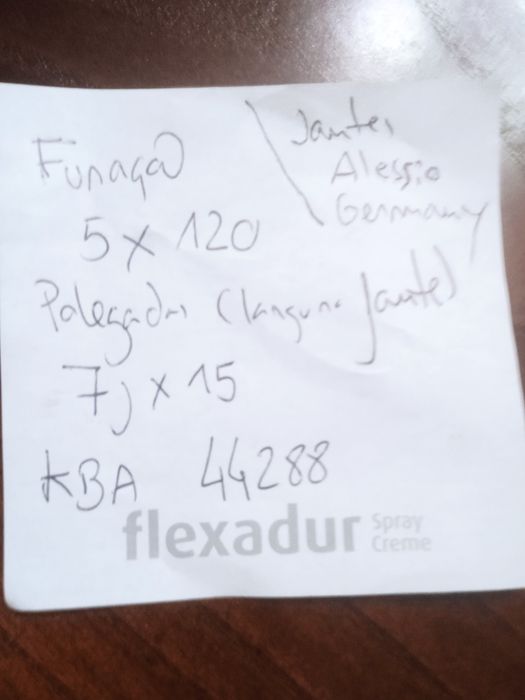 Furaçaõ
Jantes
Alessio
Germany
5 x 120
Polegadas (largura Jante)
7j x 15
KBA 44288
flexadur Spray
Creme